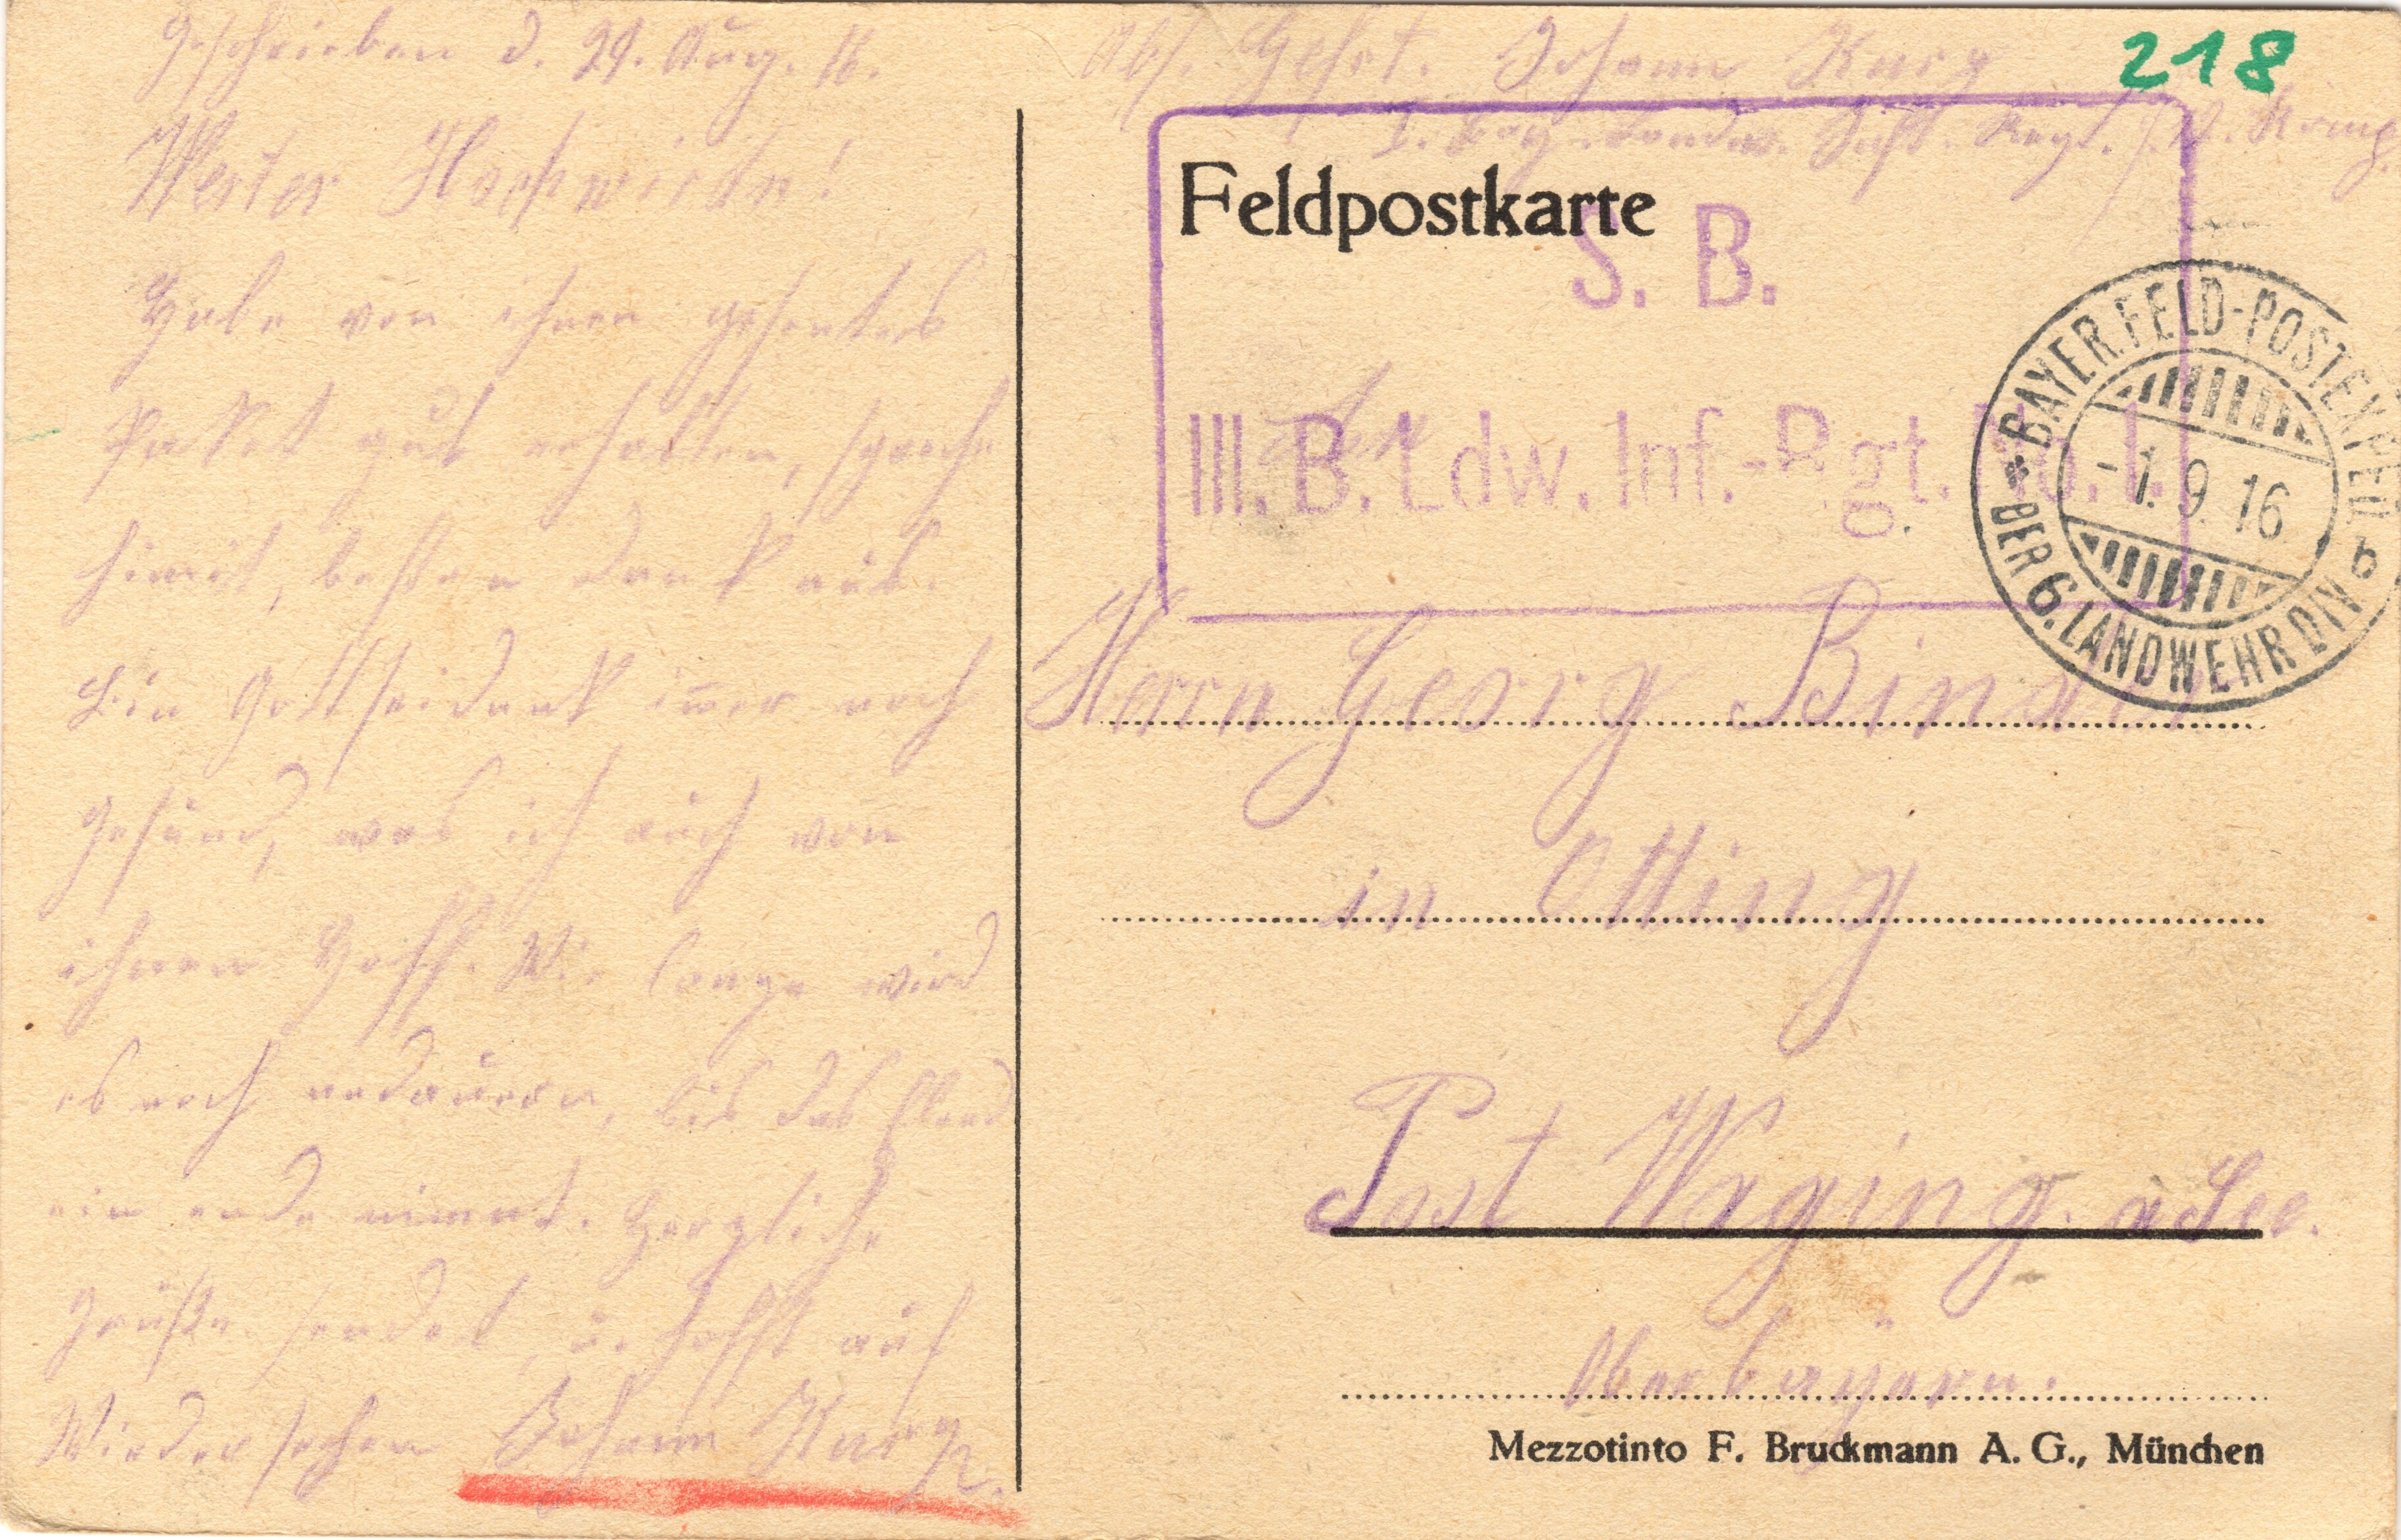 Geschrieben d. 29. Aug. 16.
Werter Hochwirdn!
Habe von ihnen gesentes
Paket gut erhalten, spreche
himit, besten dank aus.
Bin Gottseidank im̄er noch
gesund, was ich auch von
ihnen Hoff. Wie lange wird
es noch andauern, bis das Elend
ein ende nimmt. Herzliche
Grüße sendet, u. hofft auf
Wiedersehen Johann Karg.
Abs. Gefrt. Johann Karg
1. Bay. Landw. Inft. Regt.
218
Feldpostkarte
S. B.
III. B. Ldw. Inf.-Rgt. No. 1.
BAYER. FELD-POSTEXPED.
-1. 9. 16
DER 6. LANDWEHR DIV b
Herrn Georg Binder
in Otting
Post Waging. a See.
Oberbayern.
Mezzotinto F. Bruckmann A. G., München